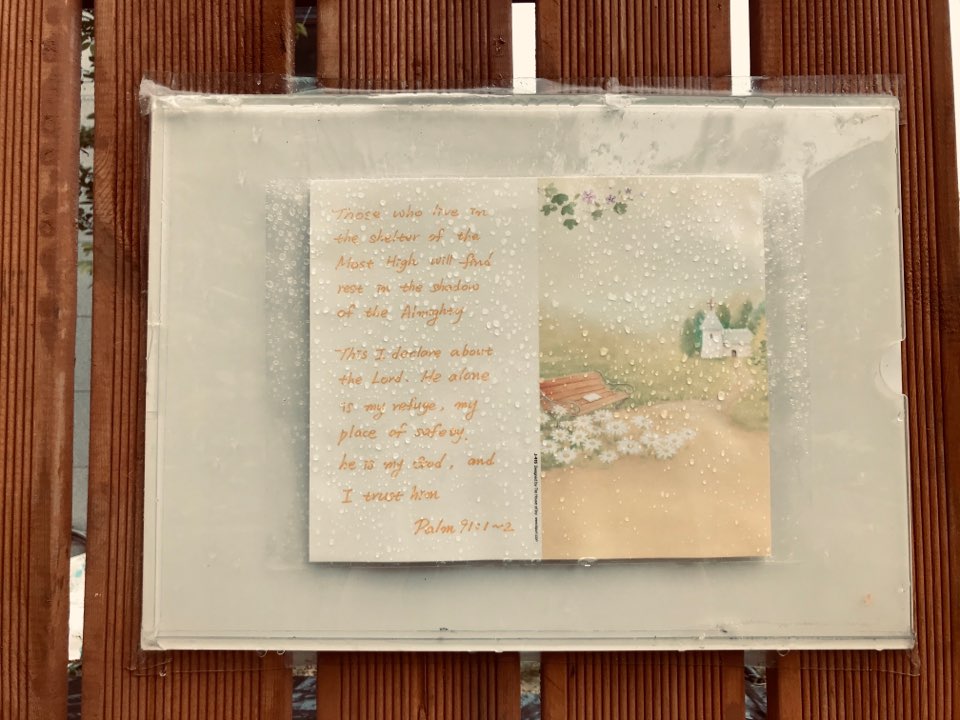 Those who live in
the shelter of the
Most High will find
rest in the shadow
of the Almighty
This I declare about
the Lord. He alone
is my refuge, my
place of safety.
he is my God, and
I trust him
Palm 91:1~2